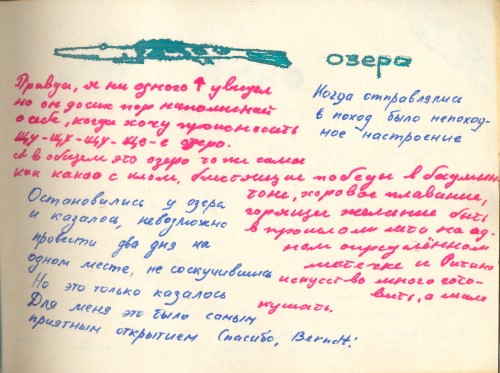 озера
Правда, я ни одного ↑ увидел
но он до сих пор напоминает
о себе, когда хочу произносить
щу-щу-щу-що-е озеро.
А в общем это озеро то же самое
как какао с блестящие победы в бадмин-
тоне, хоровое плавание,
горящии желание быть
в прошлом на од-
ном определённом
местечке и Ритино
искусство много гото-
вить, а мало
кушать.
Когда отправлялись
в поход было непоход-
ное настроение
Остановились у озера
и казалось, невозможно
провести два дня на
одном месте, не соскучившись
Но это только казалось
Для меня это было самым
приятным открытием Спасибо, Bernd!